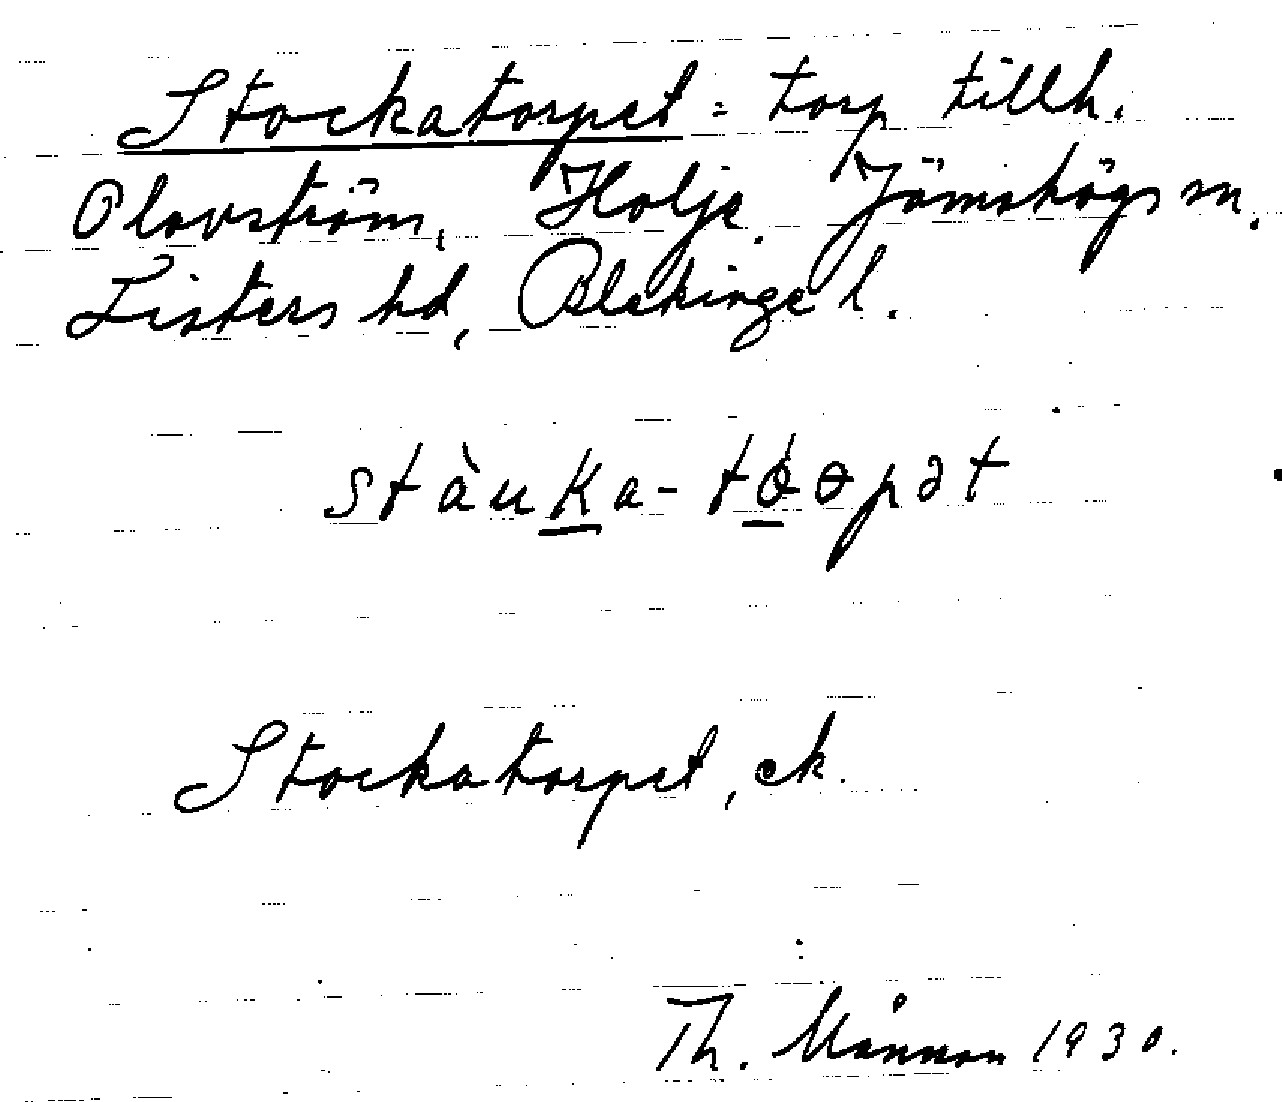 Stockatorpet = torp tillh.
Olovström, Holje, Jämshögs sn.
Listers hd, Blekinge l.
stàuka-tȯɵpət
Stockatorpet, ek.
Th. Månson 1930.